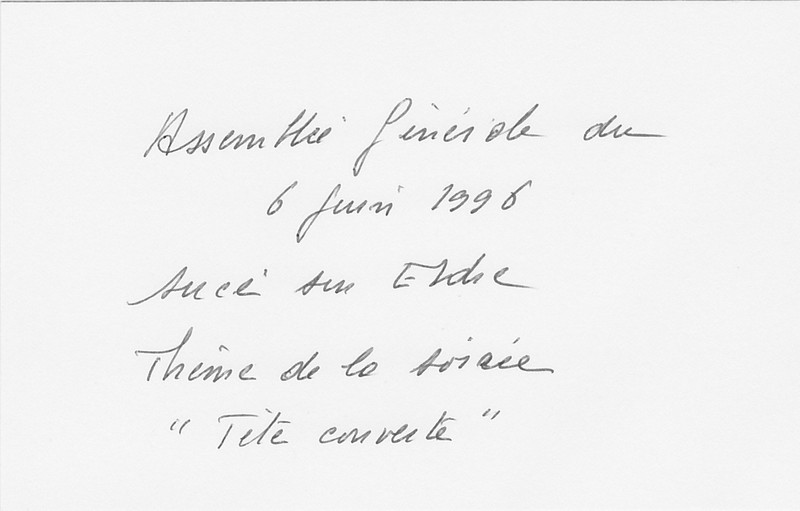 Assemblée Générale du
6 Juin 1996
Sucé sur Erdre
Thème de la soirée
" Tête couverte "